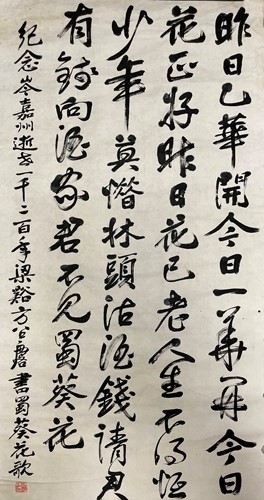 昨日乙華開今日一華開今日
花正好昨日花已老人生不得恒
少年莫惜牀頭沽酒錢請君
有錢向酒家君不見蜀葵花
纪念岑嘉州逝世一千二百年梁谿方公書蜀葵花歌